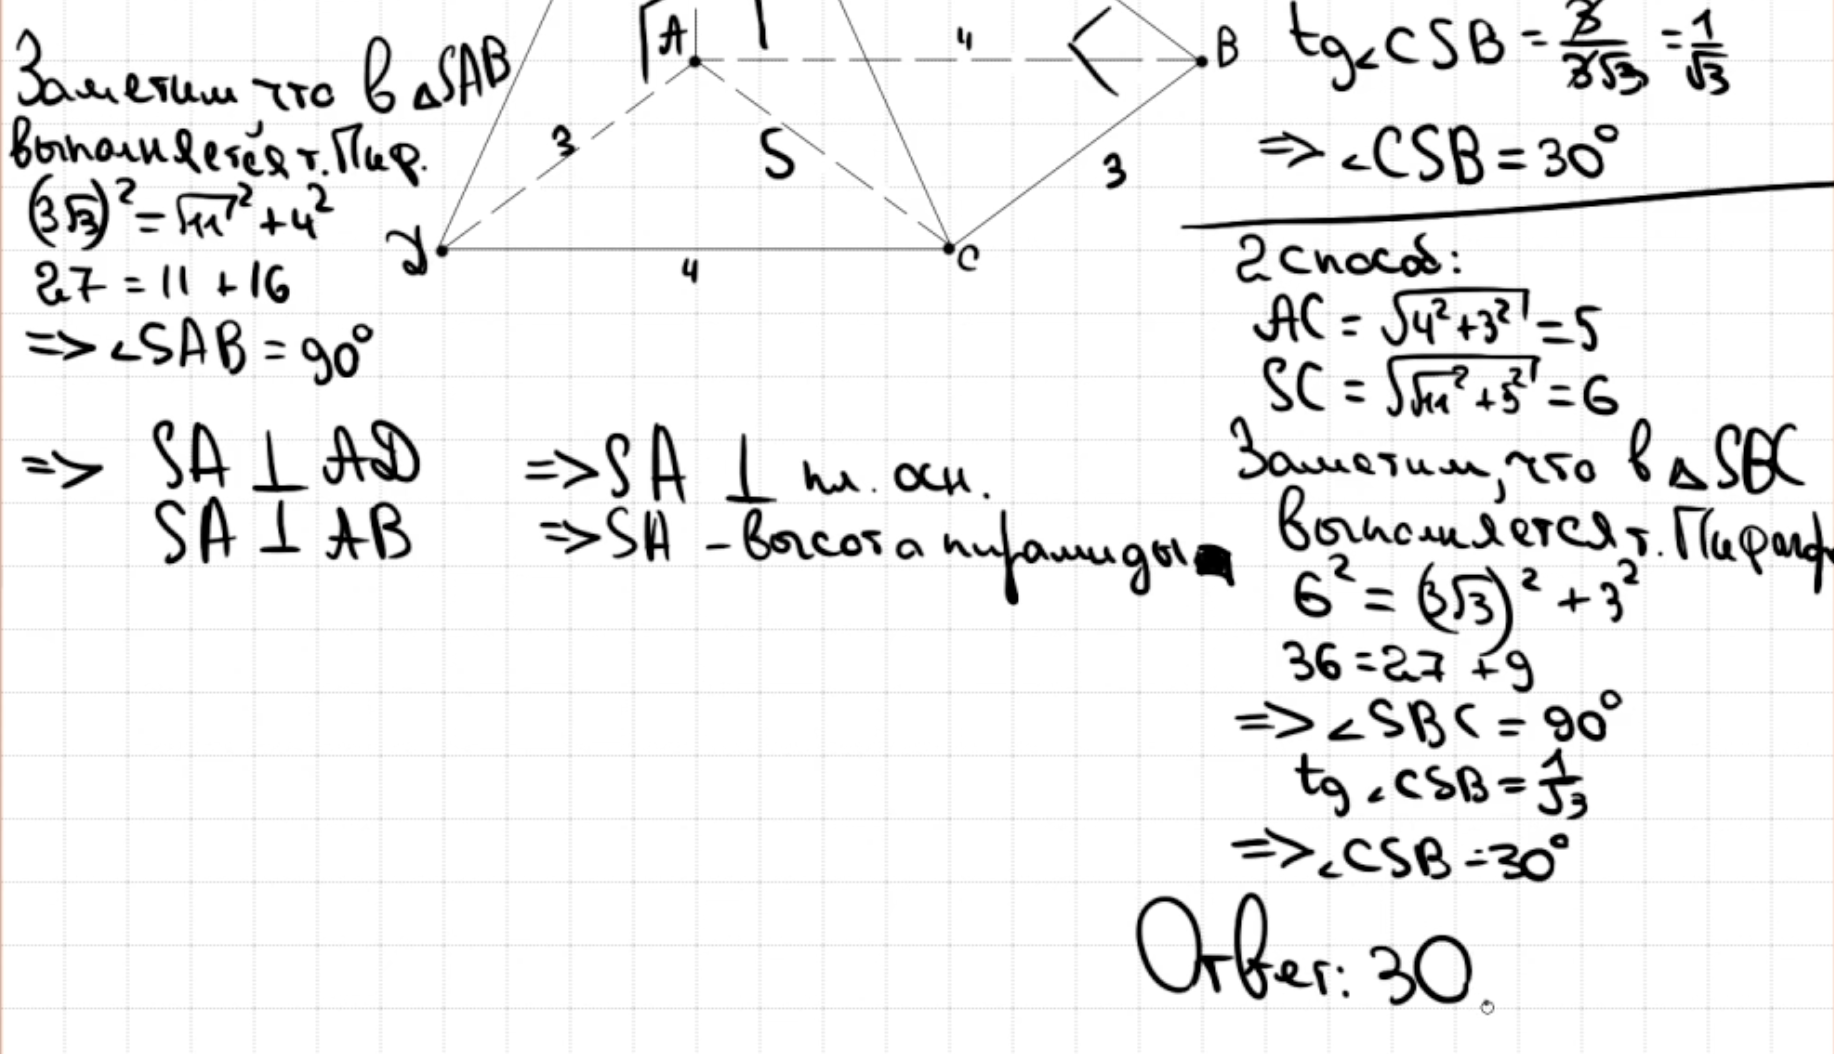 Заметим что в △SAB
выполняется т. Пиф.
(3√3)² = √11² + 4²
27 = 11 + 16
=> ∠SAB = 90°
=> SA ⊥ AD => SA ⊥ пл. осн.
SA ⊥ AB => SA - высота пирамиды
A
4
B
3
5
3
D
4
C
tg∠CSB = 3/3√3 = 1/√3
=> ∠CSB = 30°
2 способ:
AC = √4²+3² = 5
SC = √√11²+5² = 6
Заметим, что в △SBC
выполняется т. Пифаг
6² = (3√3)² + 3²
36 = 27 + 9
=> ∠SBC = 90°
tg∠CSB = 1/√3
=> ∠CSB = 30°
Ответ: 30.